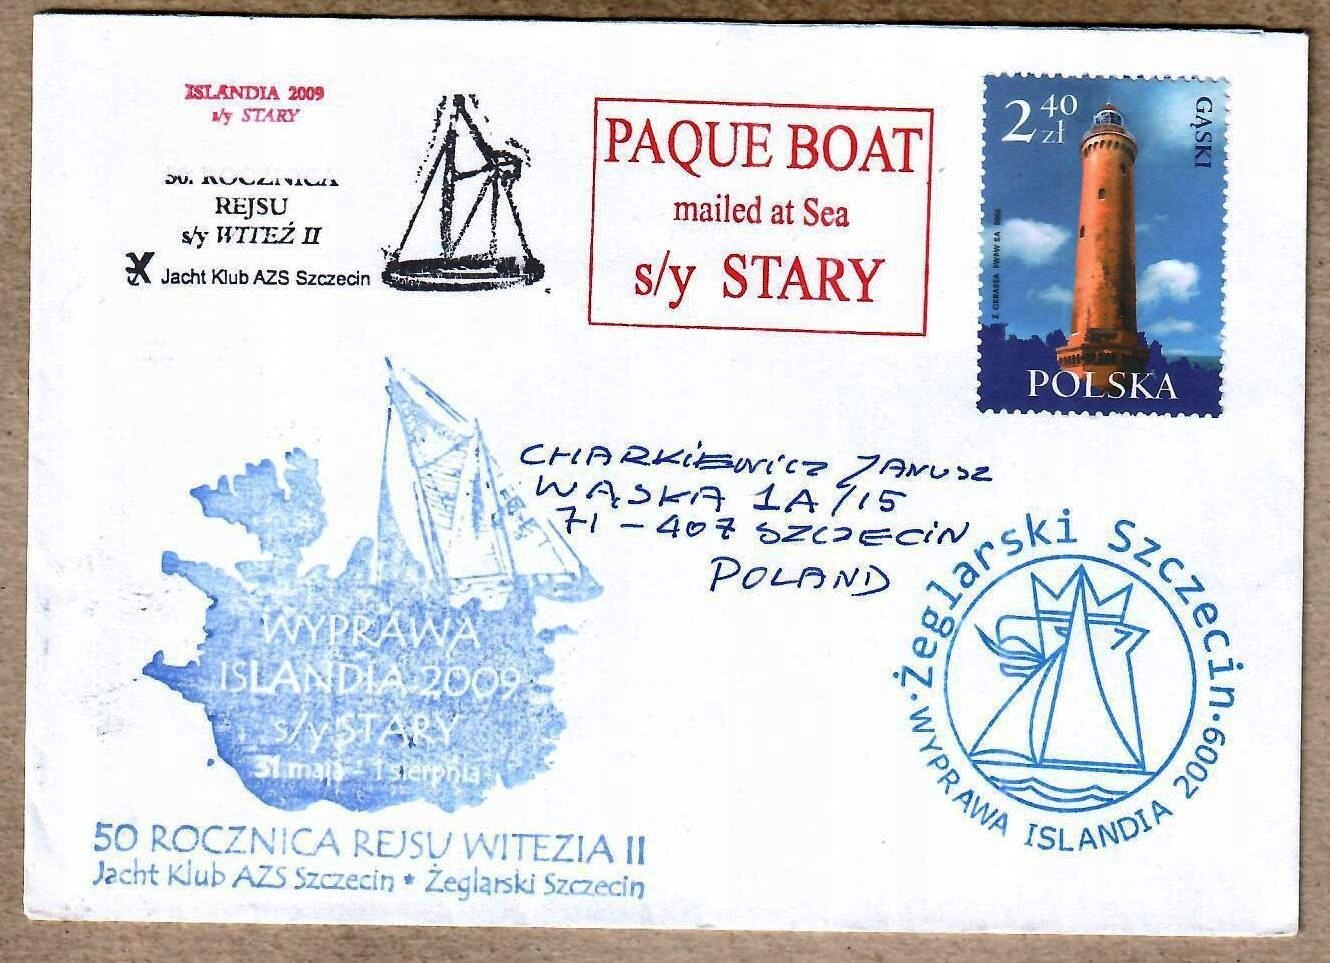 ISLANDIA 2009
s/y STARY
50. ROCZNICA
REJSU
s/y WITEŹ II
Jacht Klub AZS Szczecin
PAQUE BOAT
mailed at Sea
s/y STARY
2 40 zł
GĄSKI
POLSKA
CHARKiEWiCZ JANUSZ
WĄSKA 1A/15
71-407 SZCZECiN
POLAND
WYPRAWA
ISLANDIA 2009
s/y STARY
31 maja - 1 sierpnia
50 ROCZNICA REJSU WITEZIA II
Jacht Klub AZS Szczecin * Żeglarski Szczecin
·Żeglarski Szczecin·
WYPRAWA ISLANDIA 2009